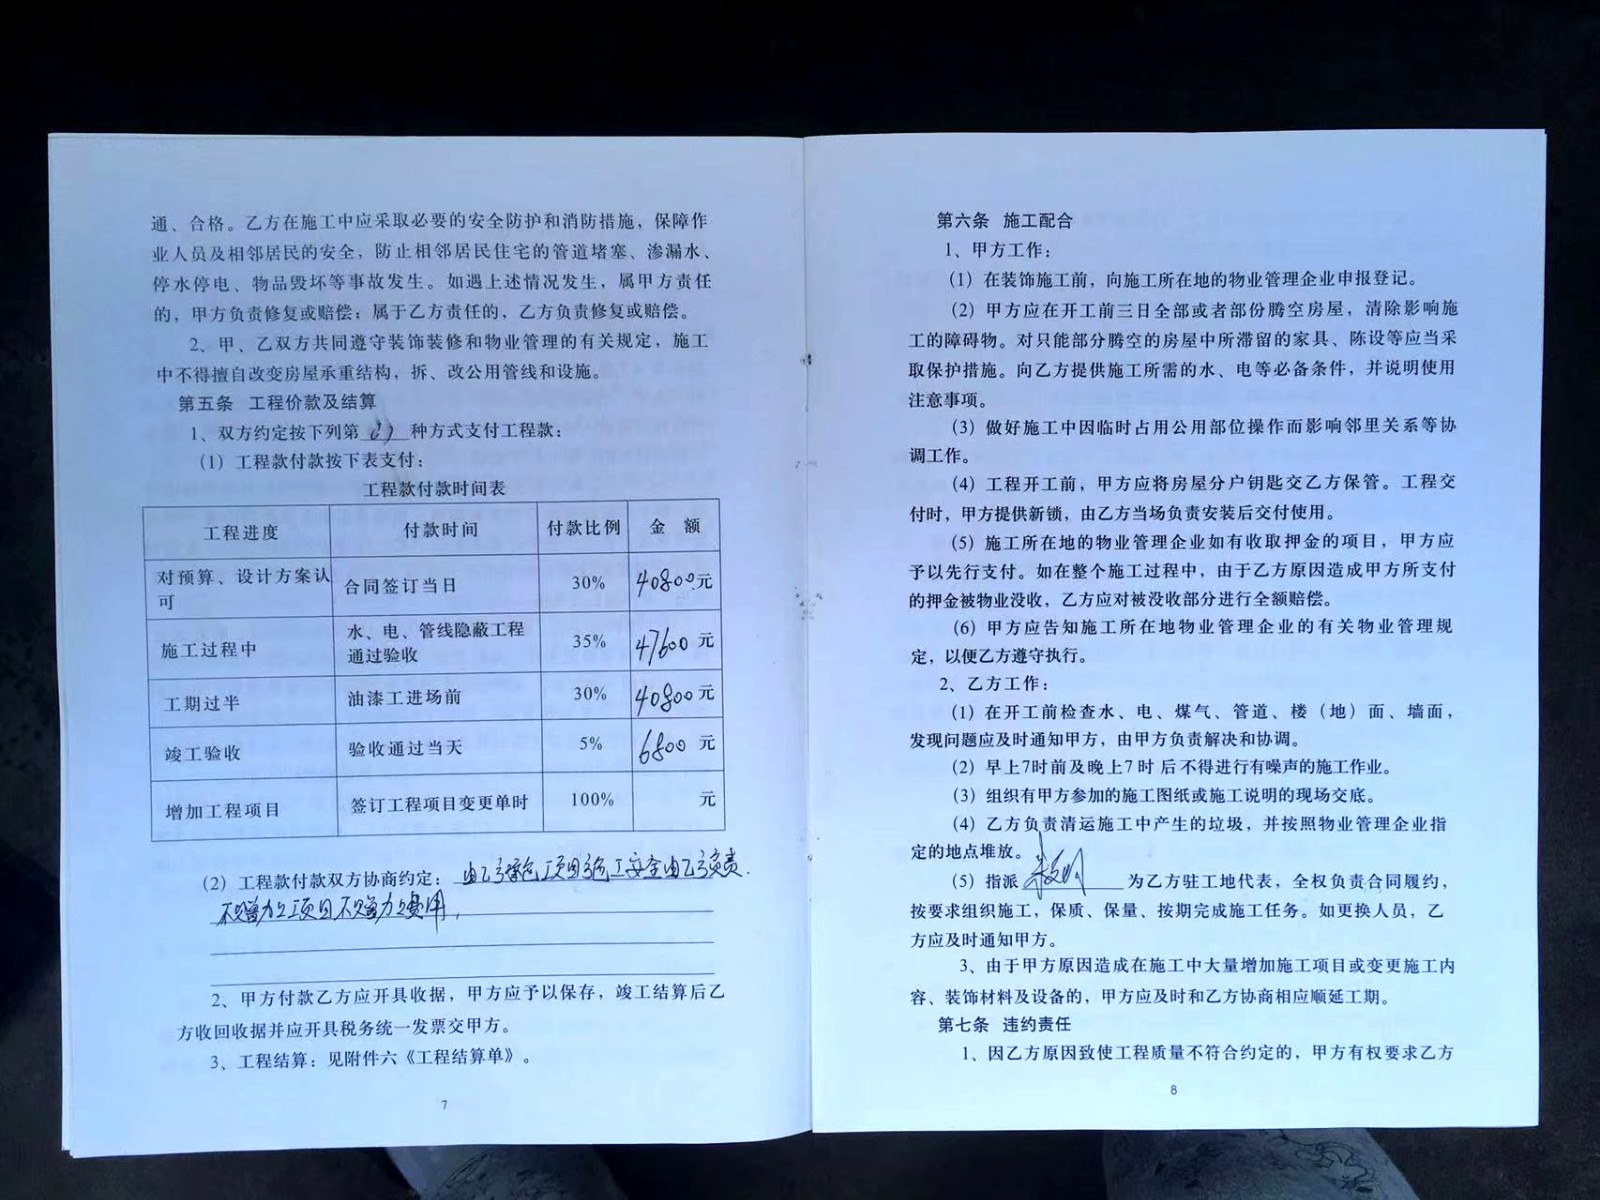 通、合格。乙方在施工中应采取必要的安全防护和消防措施，保障作
业人员及相邻居民的安全，防止相邻居民住宅的管道堵塞、渗漏水、
停水停电、物品毁坏等事故发生。如遇上述情况发生，属甲方责任
的，甲方负责修复或赔偿；属于乙方责任的，乙方负责修复或赔偿。
2、甲、乙双方共同遵守装饰装修和物业管理的有关规定，施工
中不得擅自改变房屋承重结构，拆、改公用管线和设施。
第五条 工程价款及结算
1、双方约定按下列第 种方式支付工程款：
（1）工程款付款按下表支付：
工程款付款时间表
工程进度 付款时间 付款比例 金 额
对预算、设计方案认
可 合同签订当日 30% 40800元
施工过程中 水、电、管线隐蔽工程
通过验收 35% 47600元
工期过半 油漆工进场前 30% 40800元
竣工验收 验收通过当天 5% 6800元
增加工程项目 签订工程项目变更单时 100% 元
（2）工程款付款双方协商约定：由乙方承包项目施工安全由乙方负责.
不增加项目不增加费用，
2、甲方付款乙方应开具收据，甲方应予以保存，竣工结算后乙
方收回收据并应开具税务统一发票交甲方。
3、工程结算：见附件六《工程结算单》。
7
第六条 施工配合
1、甲方工作：
（1）在装饰施工前，向施工所在地的物业管理企业申报登记。
（2）甲方应在开工前三日全部或者部份腾空房屋，清除影响施
工的障碍物。对只能部分腾空的房屋中所滞留的家具、陈设等应当采
取保护措施。向乙方提供施工所需的水、电等必备条件，并说明使用
注意事项。
（3）做好施工中因临时占用公用部位操作而影响邻里关系等协
调工作。
（4）工程开工前，甲方应将房屋分户钥匙交乙方保管。工程交
付时，甲方提供新锁，由乙方当场负责安装后交付使用。
（5）施工所在地的物业管理企业如有收取押金的项目，甲方应
予以先行支付。如在整个施工过程中，由于乙方原因造成甲方所支付
的押金被物业没收，乙方应对被没收部分进行全额赔偿。
（6）甲方应告知施工所在地物业管理企业的有关物业管理规
定，以便乙方遵守执行。
2、乙方工作：
（1）在开工前检查水、电、煤气、管道、楼（地）面、墙面，
发现问题应及时通知甲方，由甲方负责解决和协调。
（2）早上7时前及晚上7时后不得进行有噪声的施工作业。
（3）组织有甲方参加的施工图纸或施工说明的现场交底。
（4）乙方负责清运施工中产生的垃圾，并按照物业管理企业指
定的地点堆放。
（5）指派 为乙方驻工地代表，全权负责合同履约，
按要求组织施工，保质、保量、按期完成施工任务。如更换人员，乙
方应及时通知甲方。
3、由于甲方原因造成在施工中大量增加施工项目或变更施工内
容、装饰材料及设备的，甲方应及时和乙方协商相应顺延工期。
第七条 违约责任
1、因乙方原因致使工程质量不符合约定的，甲方有权要求乙方
8